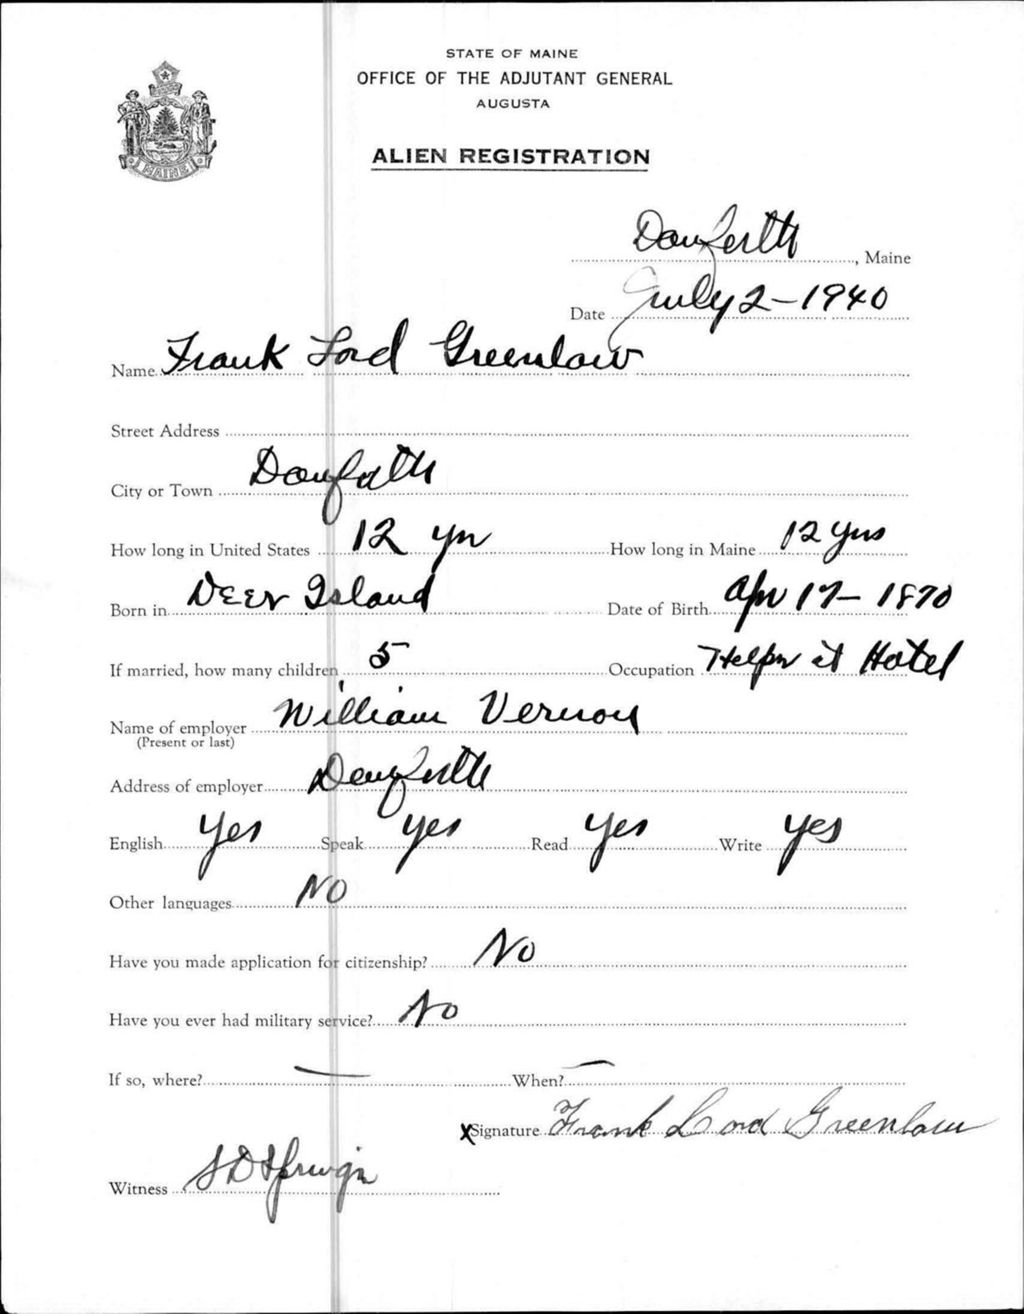 STATE OF MAINE
OFFICE OF THE ADJUTANT GENERAL
AUGUSTA
ALIEN REGISTRATION
MAINE
Danforth, Maine
Date July 2-1940
Name Frank Lord Greenlaw
Street Address
City or Town Danforth
How long in United States 12 yr How long in Maine 12 yrs
Born in Deer Island Date of Birth Apr 17-1870
If married, how many children 5 Occupation Helper at Hotel
Name of employer William Vernon
(Present or last)
Address of employer Danforth
English Yes Speak Yes Read Yes Write Yes
Other languages No
Have you made application for citizenship? No
Have you ever had military service? No
If so, where? — When? —
X Signature Frank Lord Greenlaw
Witness S D